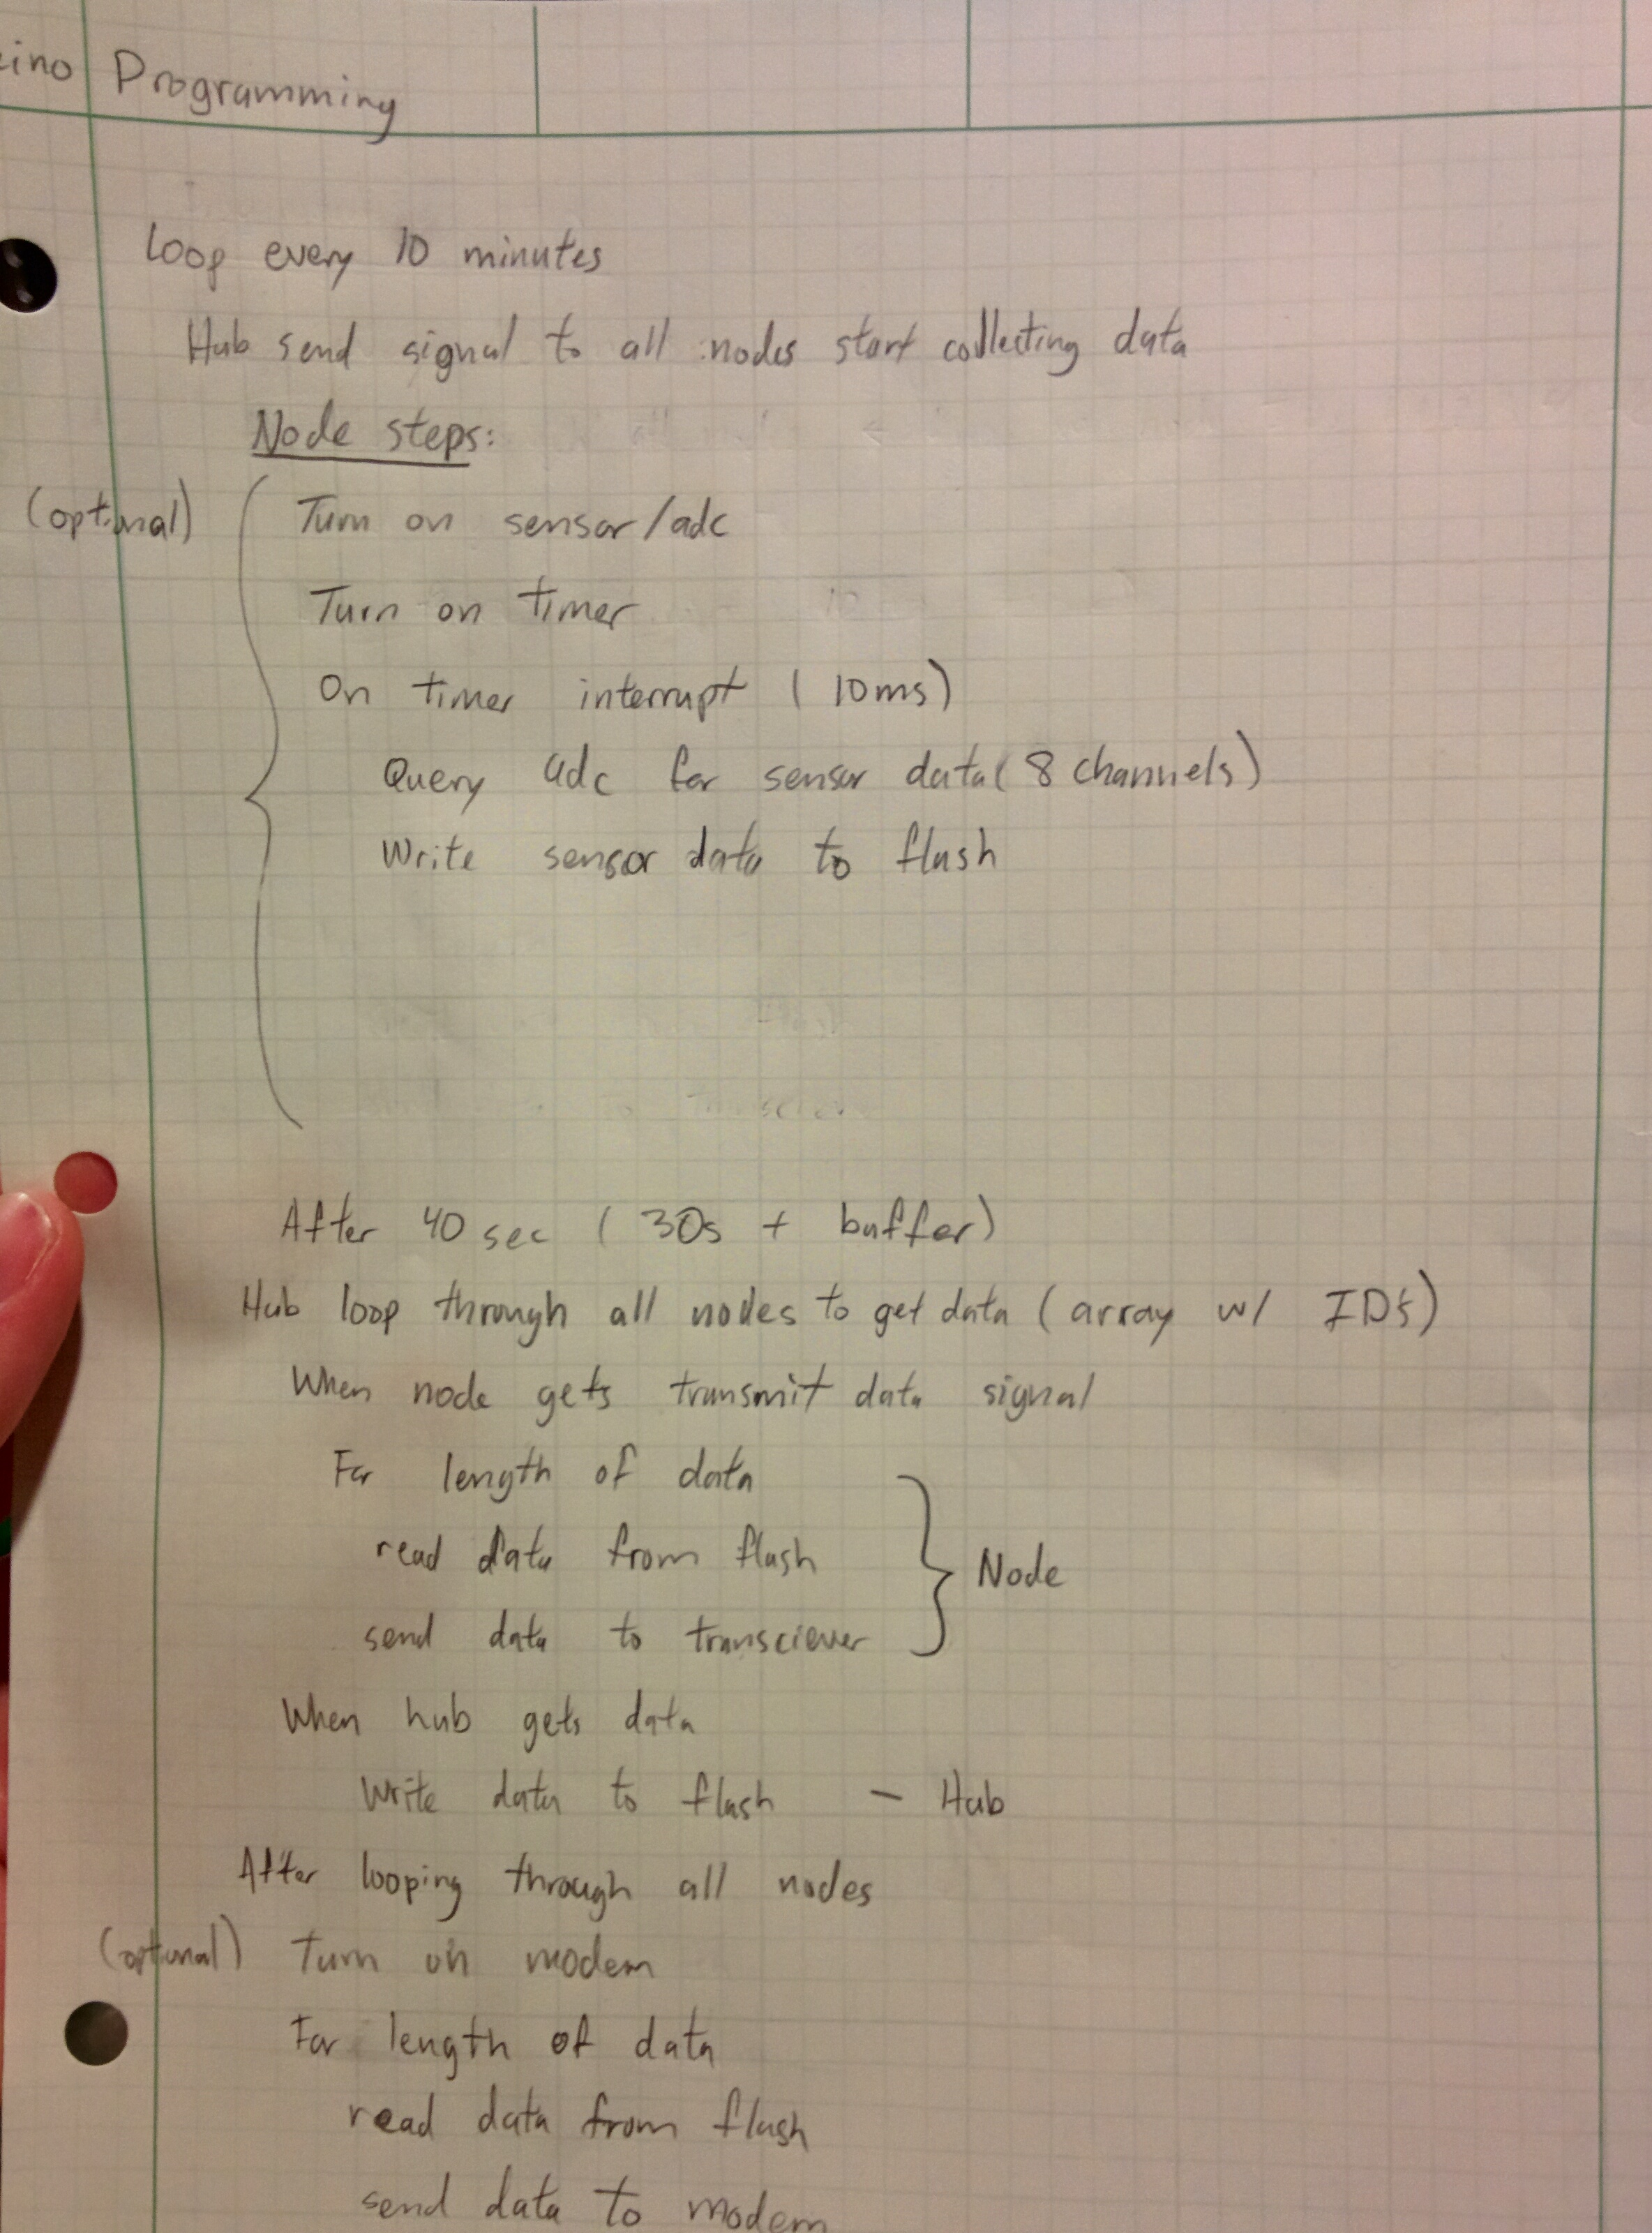 eino Programming
Loop every 10 minutes
Hub send signal to all nodes start collecting data
Node steps:
(optional) Turn on sensor/adc
Turn on timer
On timer interrupt (10ms)
Query adc for sensor data (8 channels)
Write sensor data to flash
After 40 sec (30s + buffer)
Hub loop through all nodes to get data (array w/ ID's)
When node gets transmit data signal
For length of data
read data from flash
Node
send data to transciever
When hub gets data
Write data to flash - Hub
After looping through all nodes
(optional) Turn on modem
For length of data
read data from flash
send data to modem